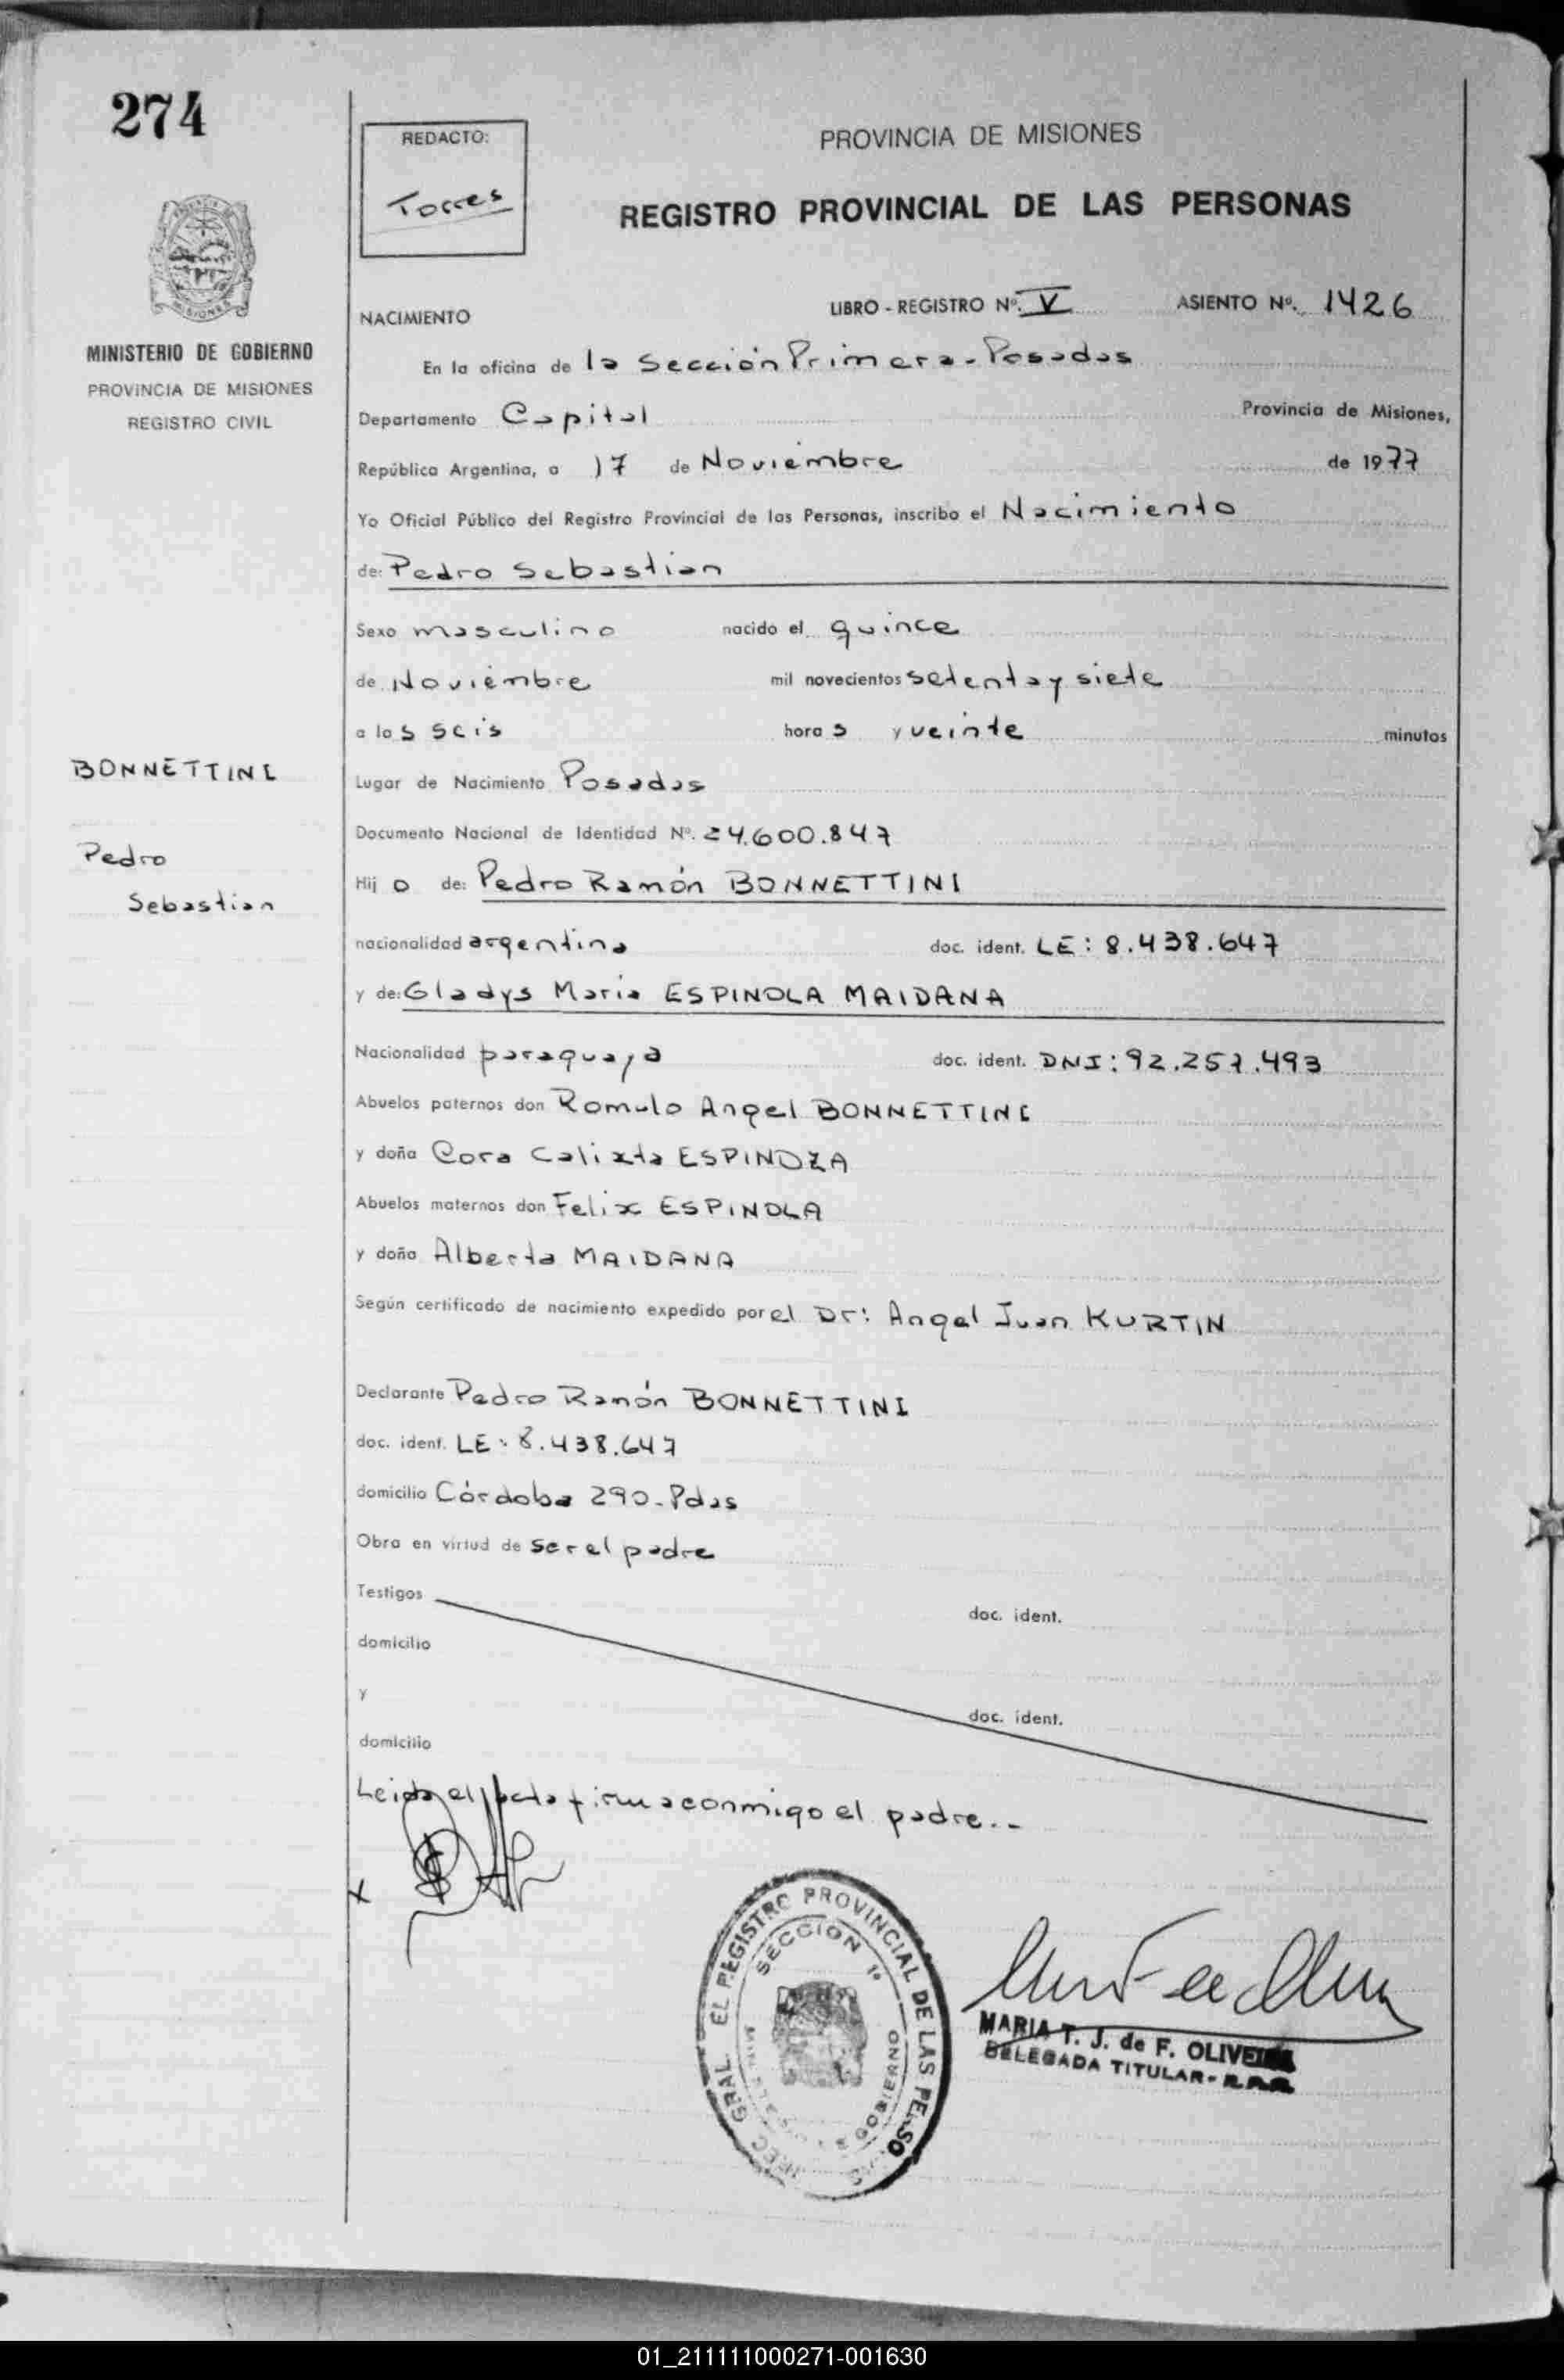 274
REDACTO:
Torres
PROVINCIA DE MISIONES
REGISTRO PROVINCIAL DE LAS PERSONAS
MISIONES
MINISTERIO DE GOBIERNO
PROVINCIA DE MISIONES
REGISTRO CIVIL
NACIMIENTO LIBRO - REGISTRO Nº. V ASIENTO Nº. 1426
En la oficina de la Sección Primera - Posadas
Departamento Capital Provincia de Misiones,
República Argentina, a 17 de Noviembre de 1977
Yo Oficial Público del Registro Provincial de las Personas, inscribo el Nacimiento
de: Pedro Sebastian
Sexo masculino nacido el quince
de Noviembre mil novecientos setenta y siete
a las seis horas y veinte minutos
BONNETTINI
Pedro
Sebastian
Lugar de Nacimiento Posadas
Documento Nacional de Identidad Nº. 24.600.847
Hijo de: Pedro Ramón BONNETTINI
nacionalidad argentina doc. ident. LE: 8.438.647
y de: Gladys Maria ESPINOLA MAIDANA
Nacionalidad paraguaya doc. ident. DNI: 92.257.493
Abuelos paternos don Romulo Angel BONNETTINI
y doña Cora Calixta ESPINOZA
Abuelos maternos don Felix ESPINOLA
y doña Alberta MAIDANA
Según certificado de nacimiento expedido por el Dr: Angel Juan KURTIN
Declarante Pedro Ramón BONNETTINI
doc. ident. LE: 8.438.647
domicilio Córdoba 290 - Pdas
Obra en virtud de ser el padre
Testigos doc. ident.
domicilio
y doc. ident.
domicilio
Leida el acta firma conmigo el padre.-
x
EL REGISTRO PROVINCIAL DE LAS
SECCION 1ª
GOBIERNO
GRAL.
MARIA T. J. de F. OLIVEIRA
DELEGADA TITULAR - R.P.P.
01_211111000271-001630